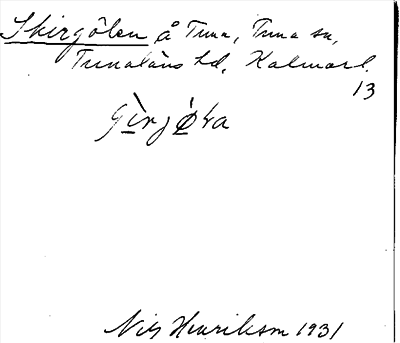 Skirgölen å Tuna, Tuna sn,
Tunaläns hd, Kalmarl.
13
Nils Henrikson 1931